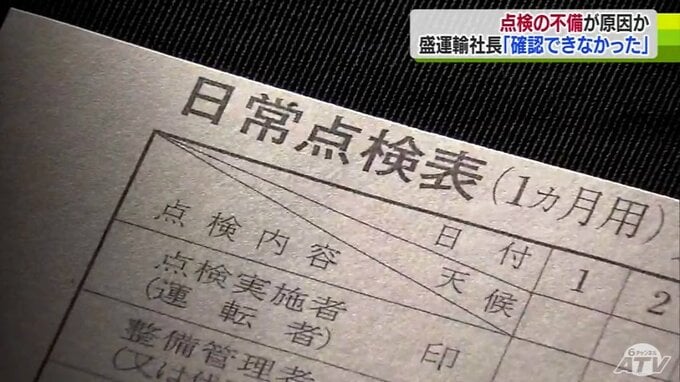 点検の不備が原因か
盛運輸社長「確認できなかった」
日常点検表(1カ月用)
日付
天候
点検内容
1
2
点検実施者
(運転者)
印
整備管理者
(又は
6チャンネル
ATV